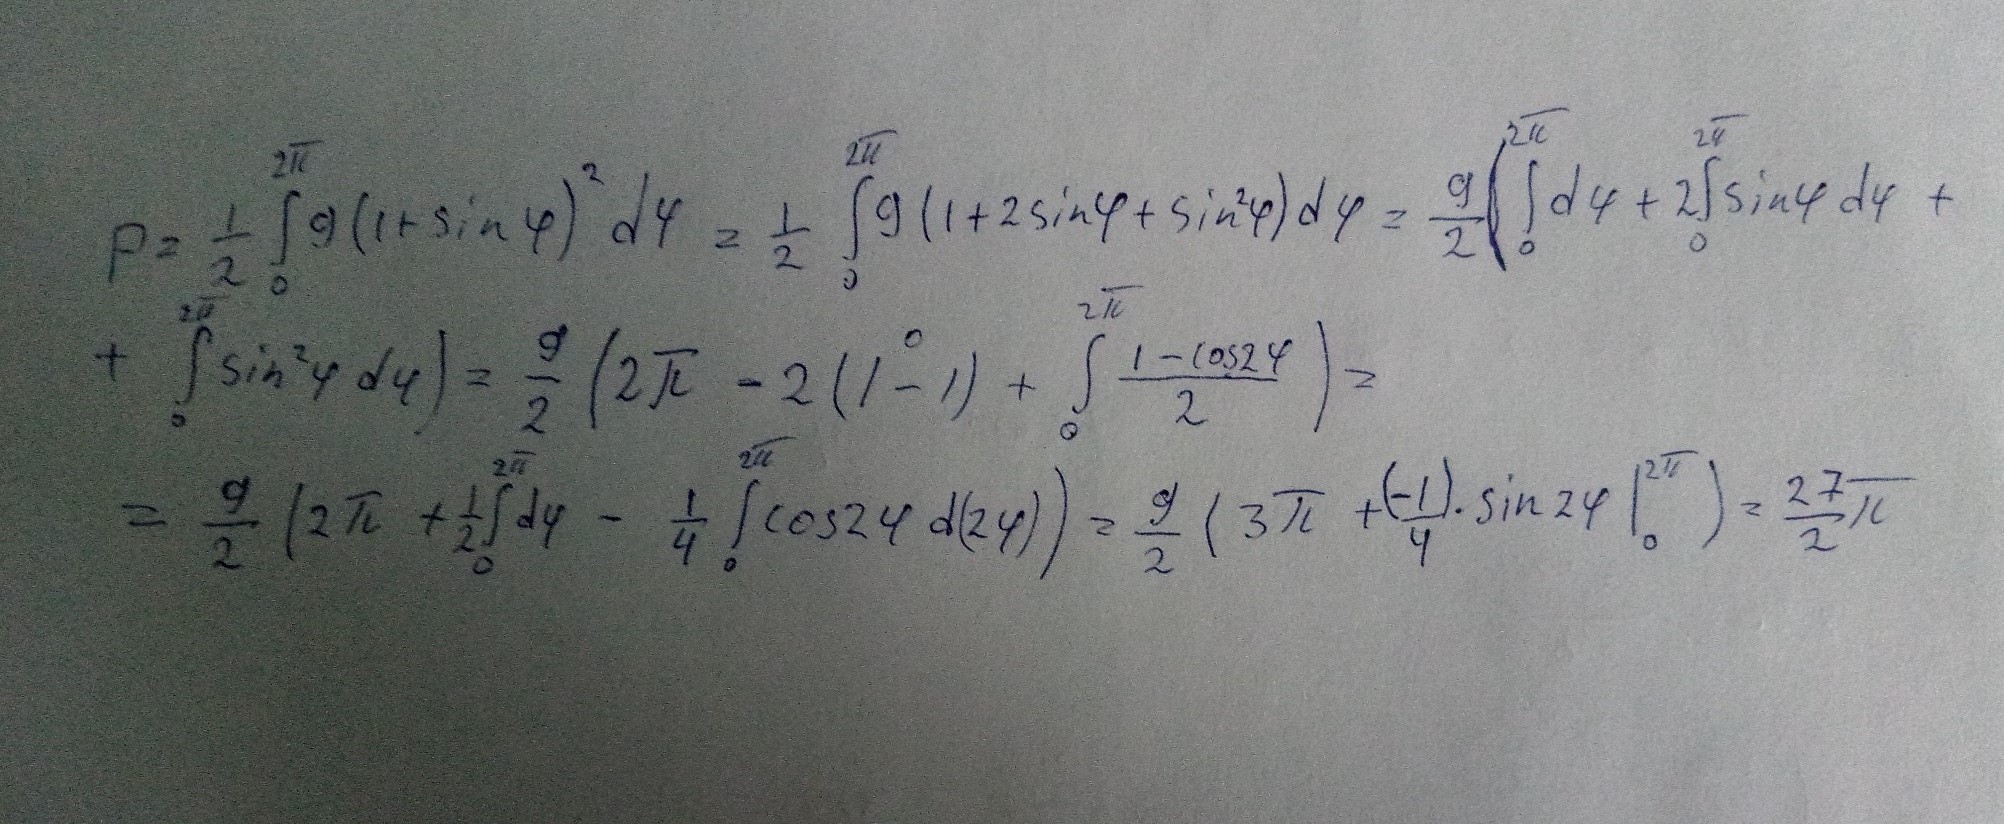 P = \frac{1}{2} \int_0^{2π} 9(1+sin φ)^2 dφ = \frac{1}{2} \int_0^{2π} 9(1+2sinφ+sin^2φ)dφ = \frac{9}{2} ( \int_0^{2π} dφ + 2\int_0^{2π} sinφ dφ +
+ \int_0^{2π} sin^2φ dφ) = \frac{9}{2} (2π - 2(1-1)^0 + \int_0^{2π} \frac{1-cos2φ}{2} ) =
= \frac{9}{2} (2π + \frac{1}{2}\int_0^{2π} dφ - \frac{1}{4} \int_0^{2π} cos2φ d(2φ)) = \frac{9}{2} (3π + (\frac{-1}{4}) · sin2φ |_0^{2π} ) = \frac{27}{2}π